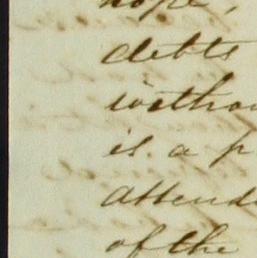 hope,
debts
withou
is a p
attend
of the